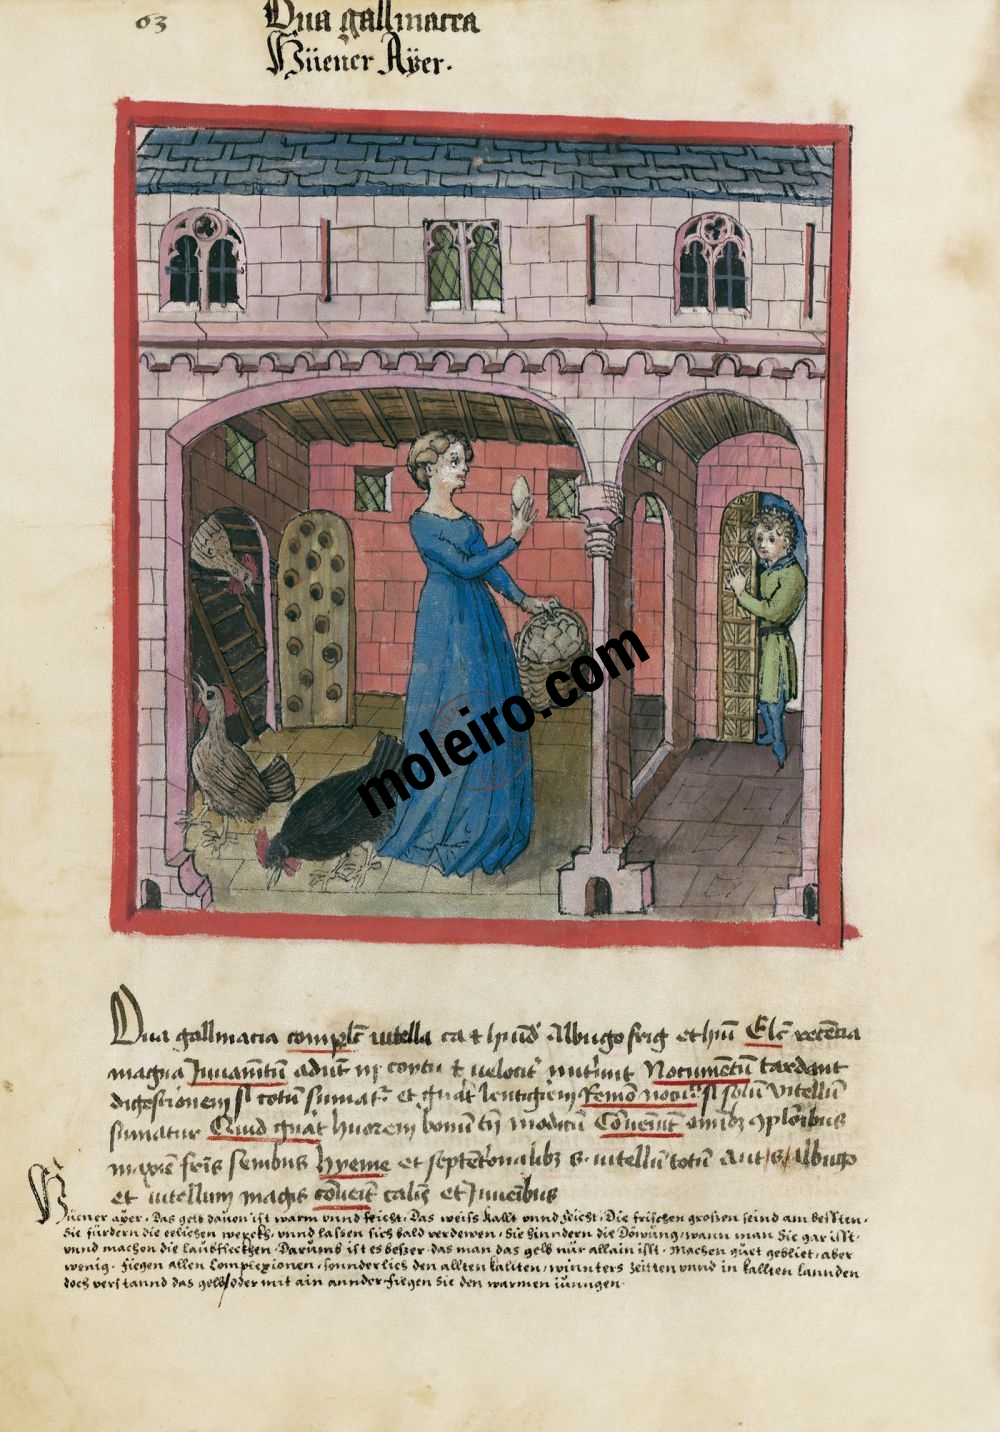 63
Ova gallinacea
Hüener Aÿer.
moleiro.com
Ova gallinacia complẽ vitella ca & hũd Albugo frig et hũ Elẽ recẽtia
magna Juvamẽtũ coytu & velocit nutriũt Nocumẽtũ tardant
digestionem si totũ sumat et gñat lentiginem Remo nocu si solũ vitellũ
sumatur Quid gñat huorem bonũ modicũ Cõueniũt
fris senibus Hyeme et septẽtrionalibꝫ s. vitellũ totũ Aut s Albugo
et vitellum magis cõueit calis et Juueibus
Hüener aÿer. Das gelb dauon ist warm vnnd feicht. Das weiss kallt vnnd feicht. Die frischen grossen seind am bessten.
Sie fürdern die eelichen werckh. vnnd lassen sich bald verdewen. Sie hinndern die Döwung, wann man Sie gar isst.
vnnd machen die laubfleckhen. Darumb ist es besser das man das gelb nür allain isst. Machen guet gebliet, aber
wenig. fiegen allen Complexionen, sonnderlich den allten kallten, winnters zeitten vnnd in kallten lannden
doch verstannd das gelb, oder mit ain annder fiegen Sie den warmen iunngen.